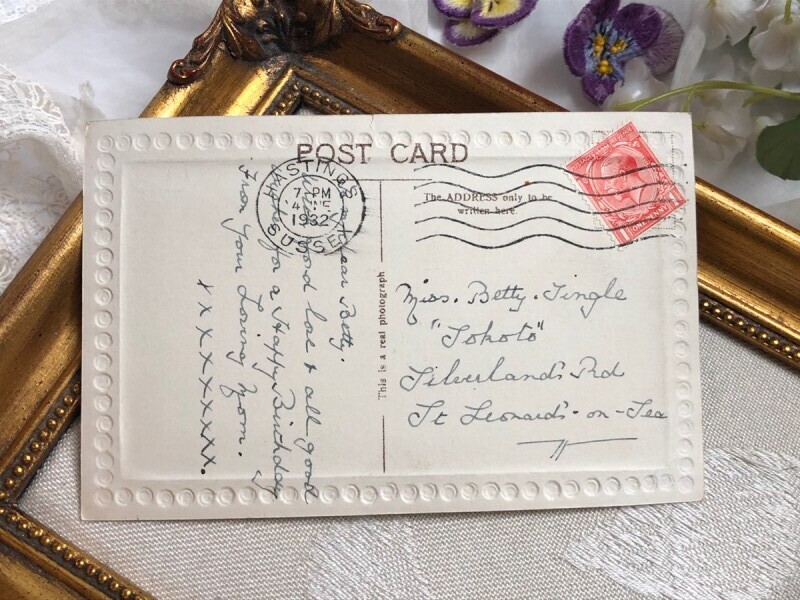 POST CARD
HASTINGS
7 PM
4
1932
SUSSEX
The ADDRESS only to be
written here.
ONE PENNY
This is a real photograph
dear Betty.
fond love & all good
wishes for a Happy Birthday
From Your Loving Mom.
x x x x x x x x x.
Miss. Betty.
"Sokoto"
Silverlands Rd
St Leonards-on-Sea